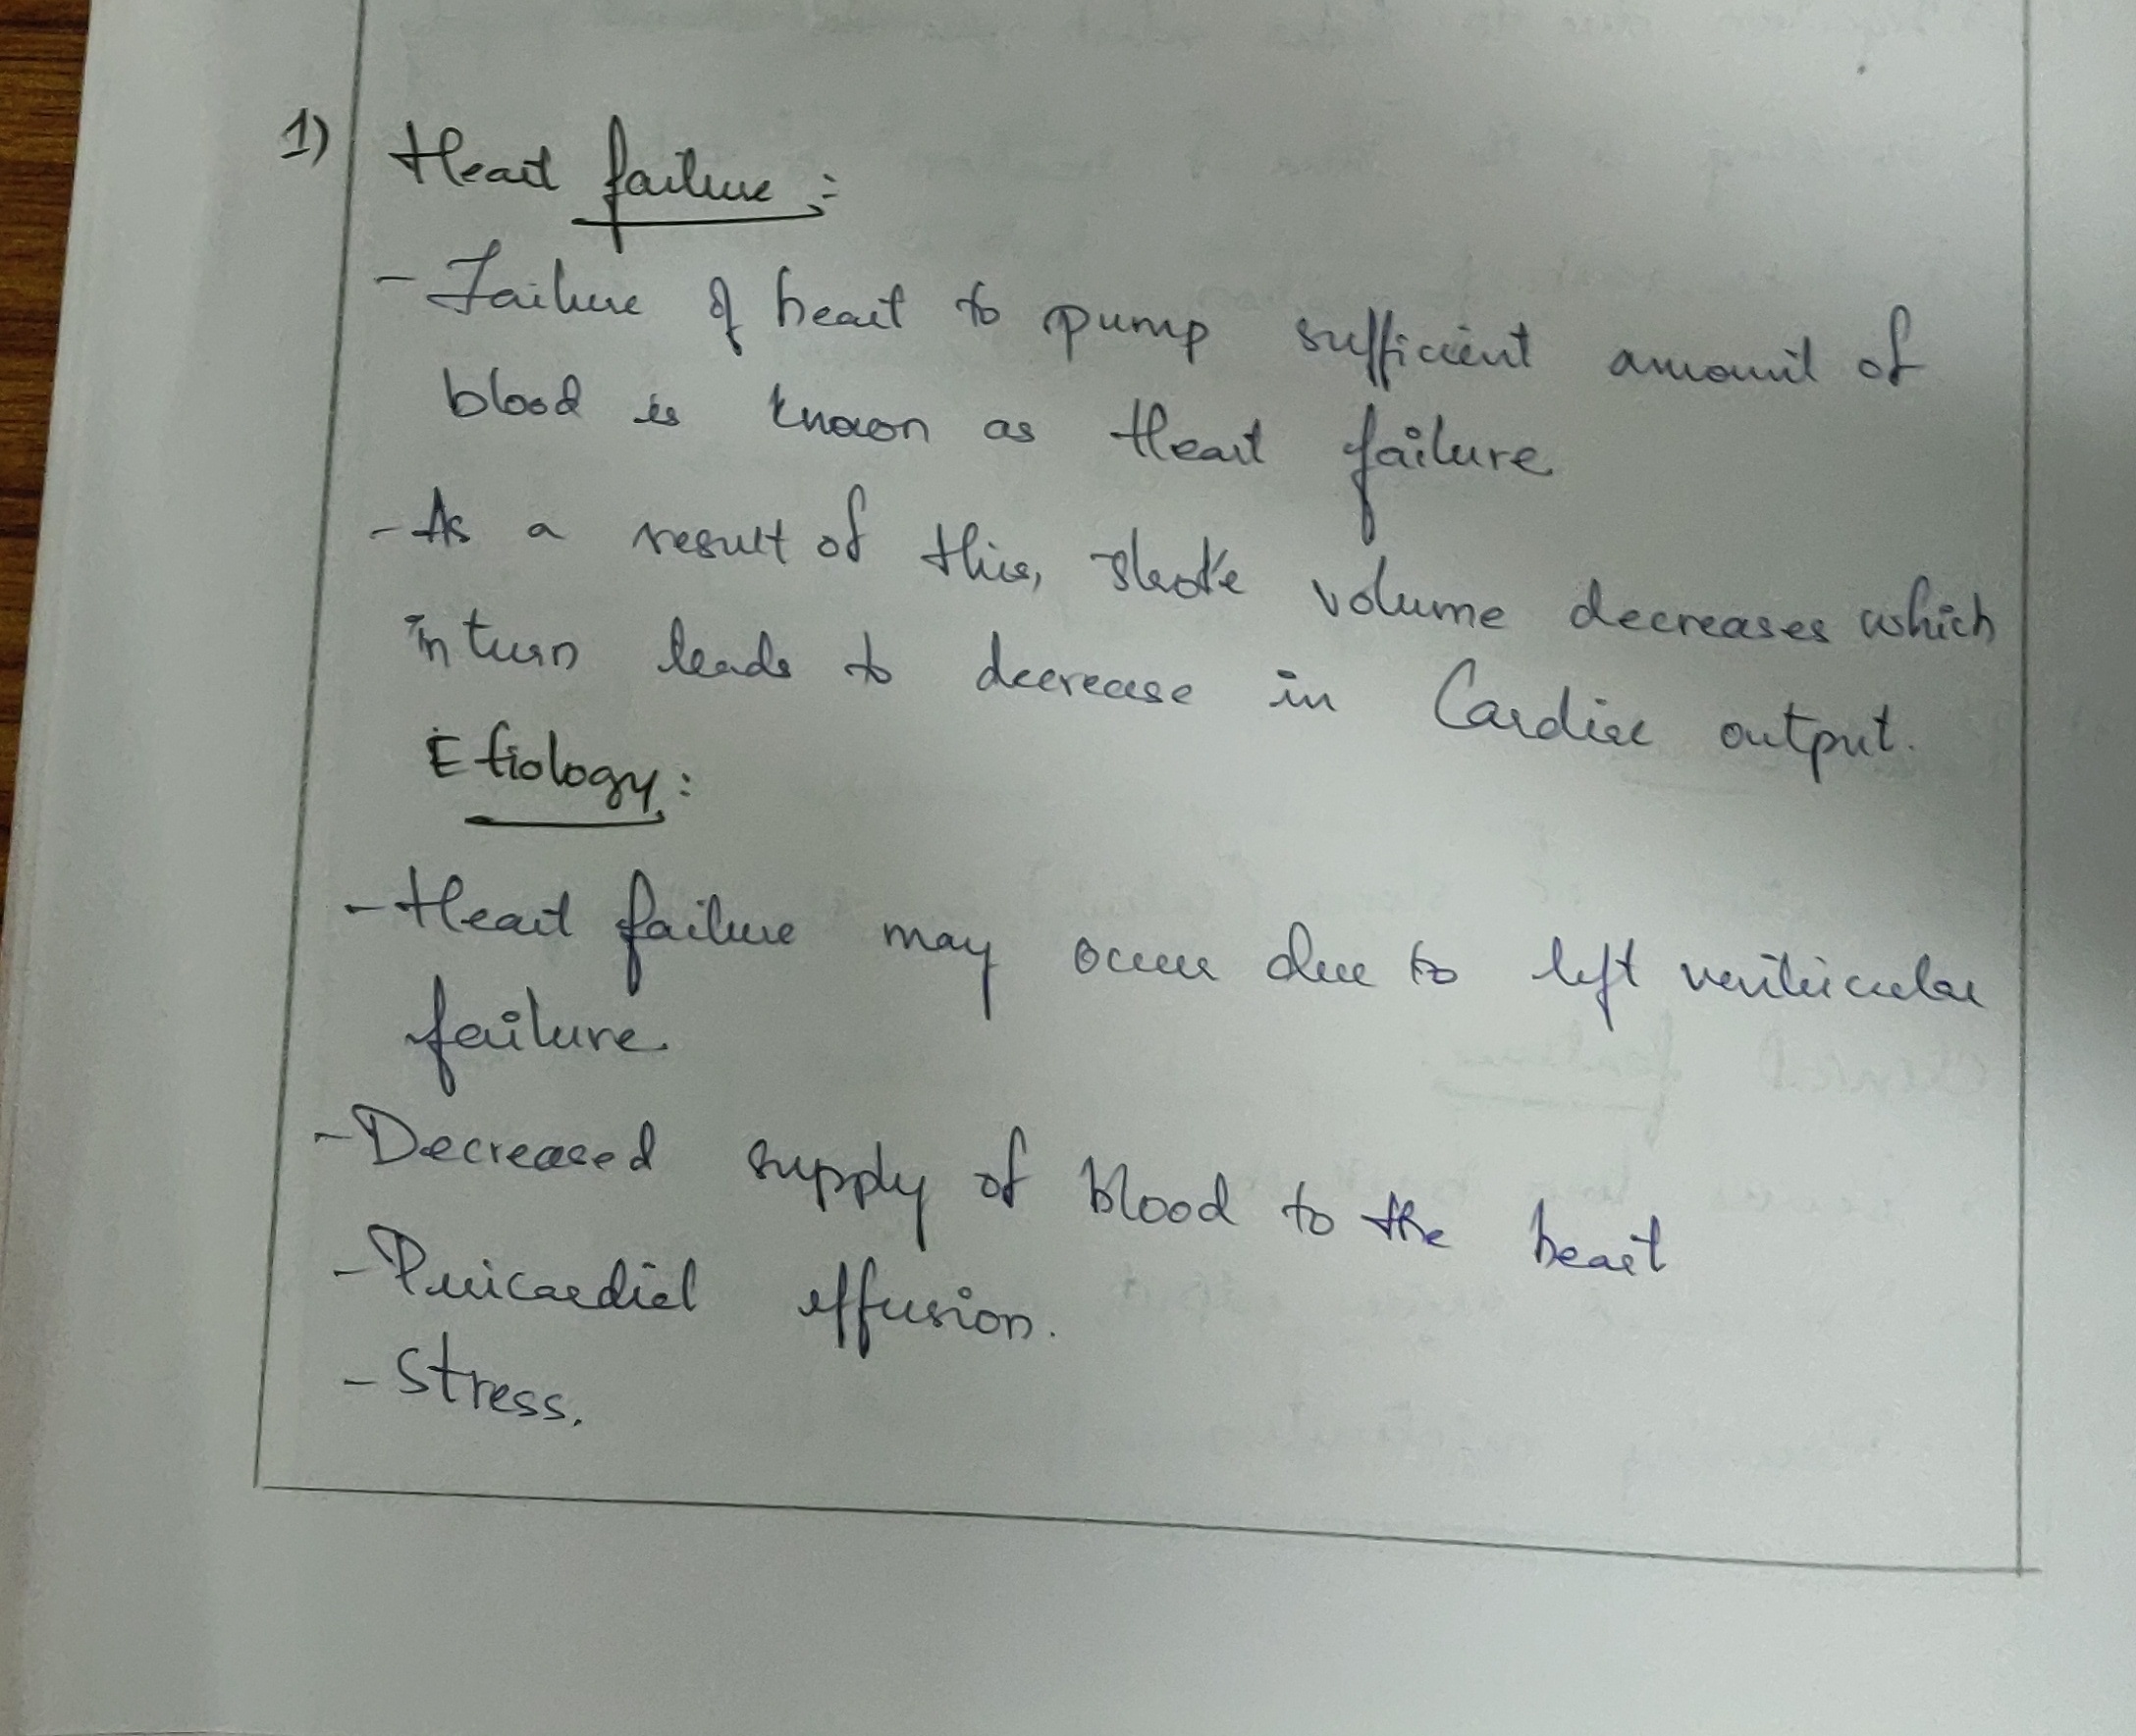 1) Heart failure :
- Failure of heart to pump sufficient amount of
blood is known as Heart failure
- As a result of this, stroke volume decreases which
in turn leads to decrease in Cardiac output.
Etiology :
- Heart failure may occur due to left ventricular
failure.
- Decreased supply of blood to the heart
- Pericardial effusion.
- Stress.